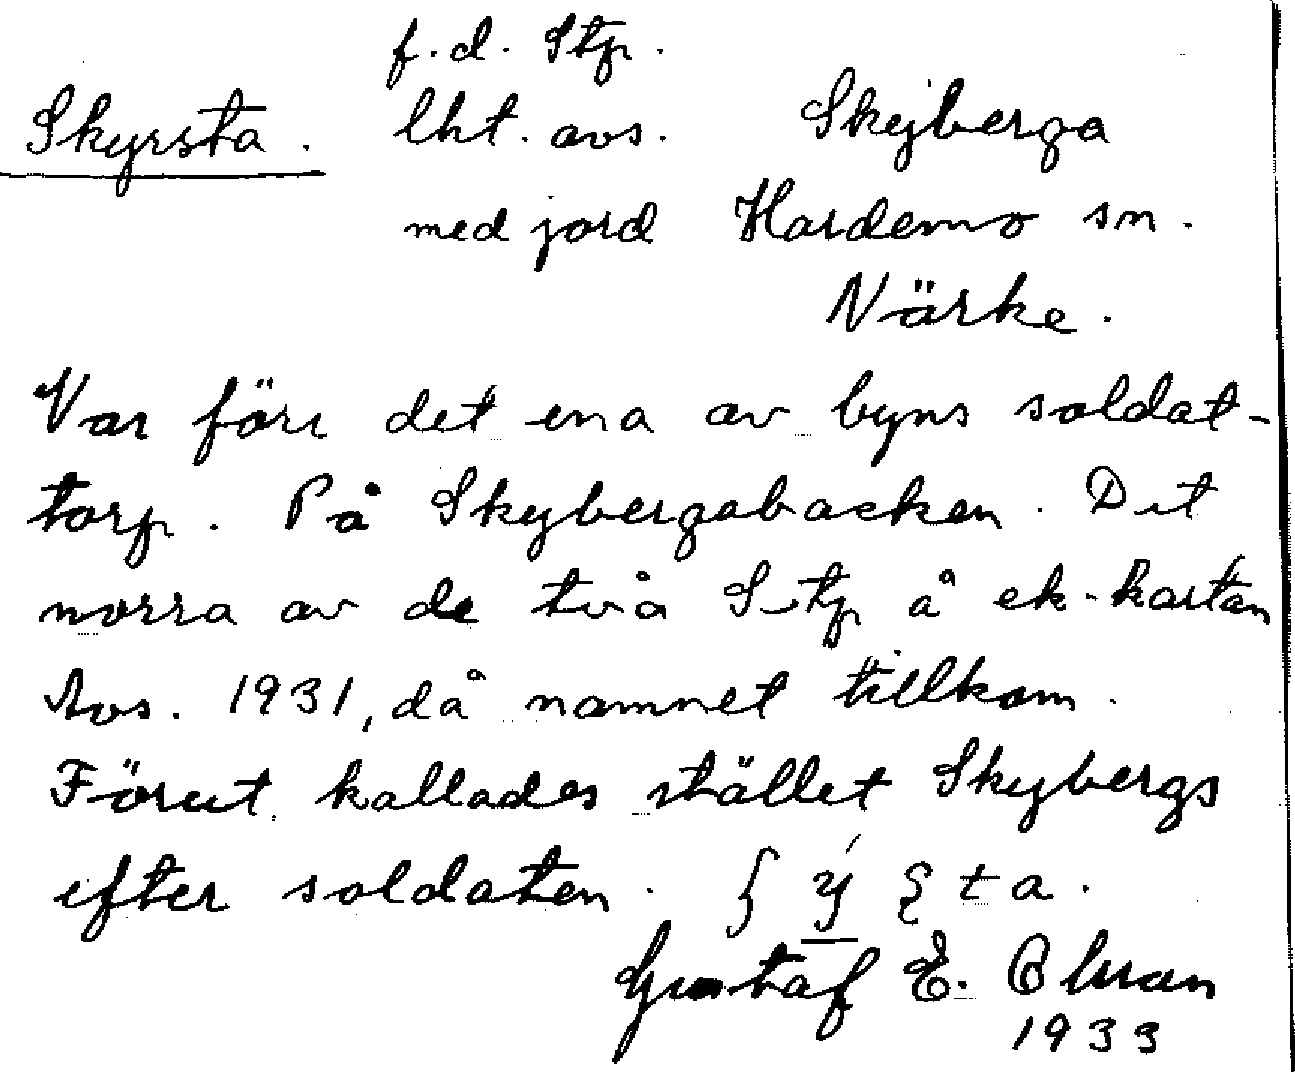 f.d. Stp.
Skyrsta. lht. avs. Skyberga
med jord Hardemo sn.
Närke.
Var förr det ena av byns soldat-
torp. På Skybergabacken. Det
norra av de två S-tp å ek-kartan
Avs. 1931, då namnet tillkom.
Förut kallades stället Skybergs
efter soldaten.
Gustaf E.
1933